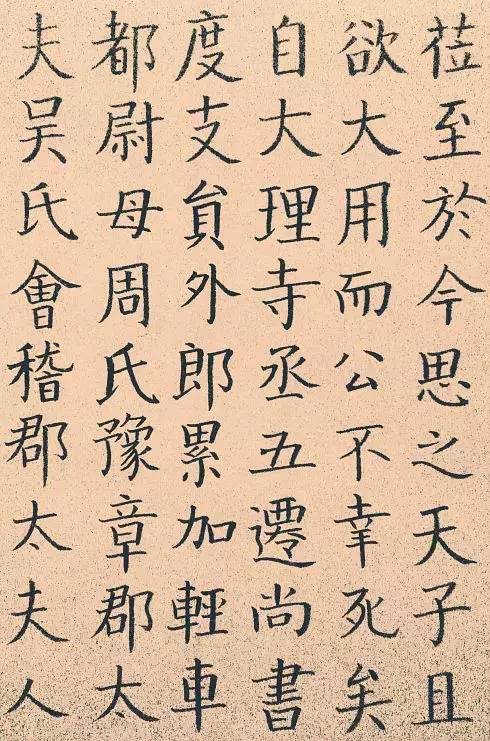 莅至於今思之天子且
欲大用而公不幸死矣
自大理寺丞五遷尚書
度支員外郎累加輕車
都尉母周氏豫章郡太
夫吴氏會稽郡太夫人